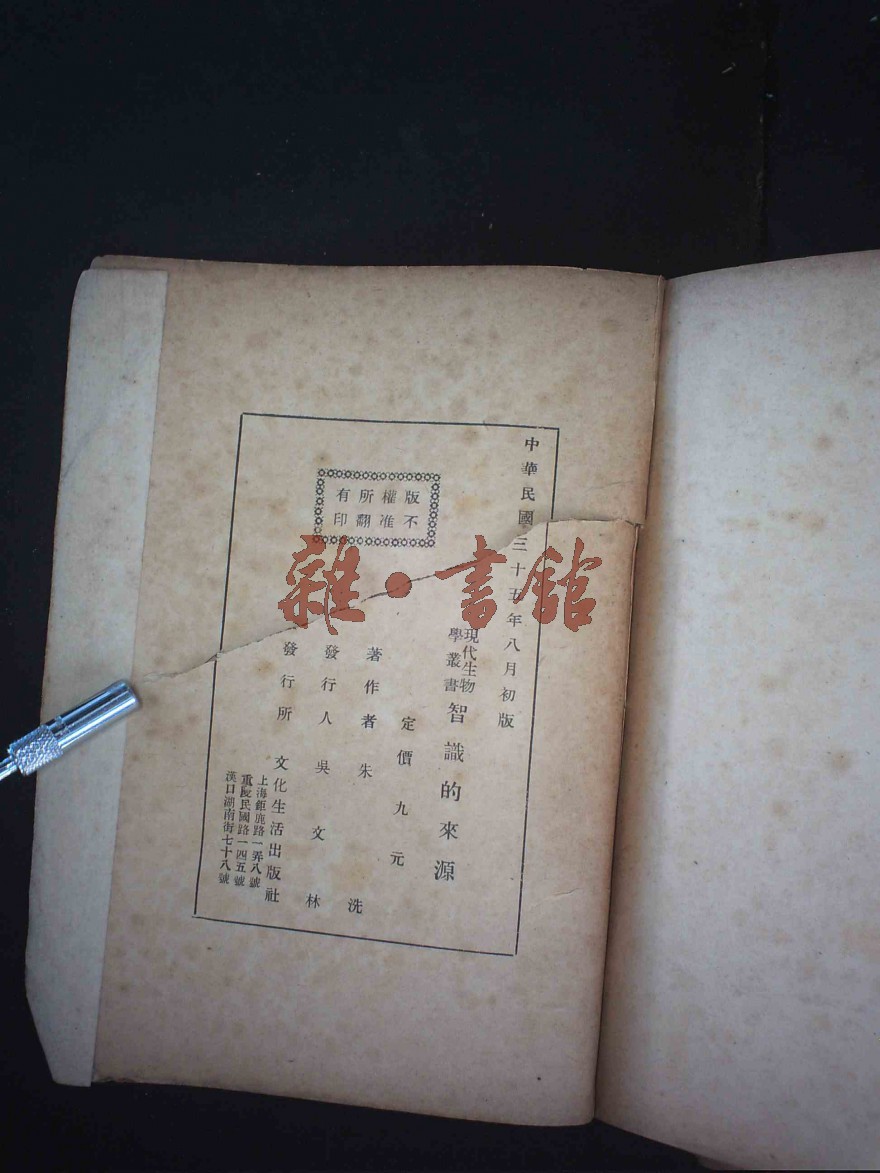 中華民國三十五年八月初版
現代生物
學叢書
智識的來源
定價九元
著作者 朱洗
發行人 吳文林
發行所 文化生活出版社
上海鉅鹿路一弄八號
重慶民國路一四五號
漢口湖南街七十八號
版權所有
不准翻印
雜·書館